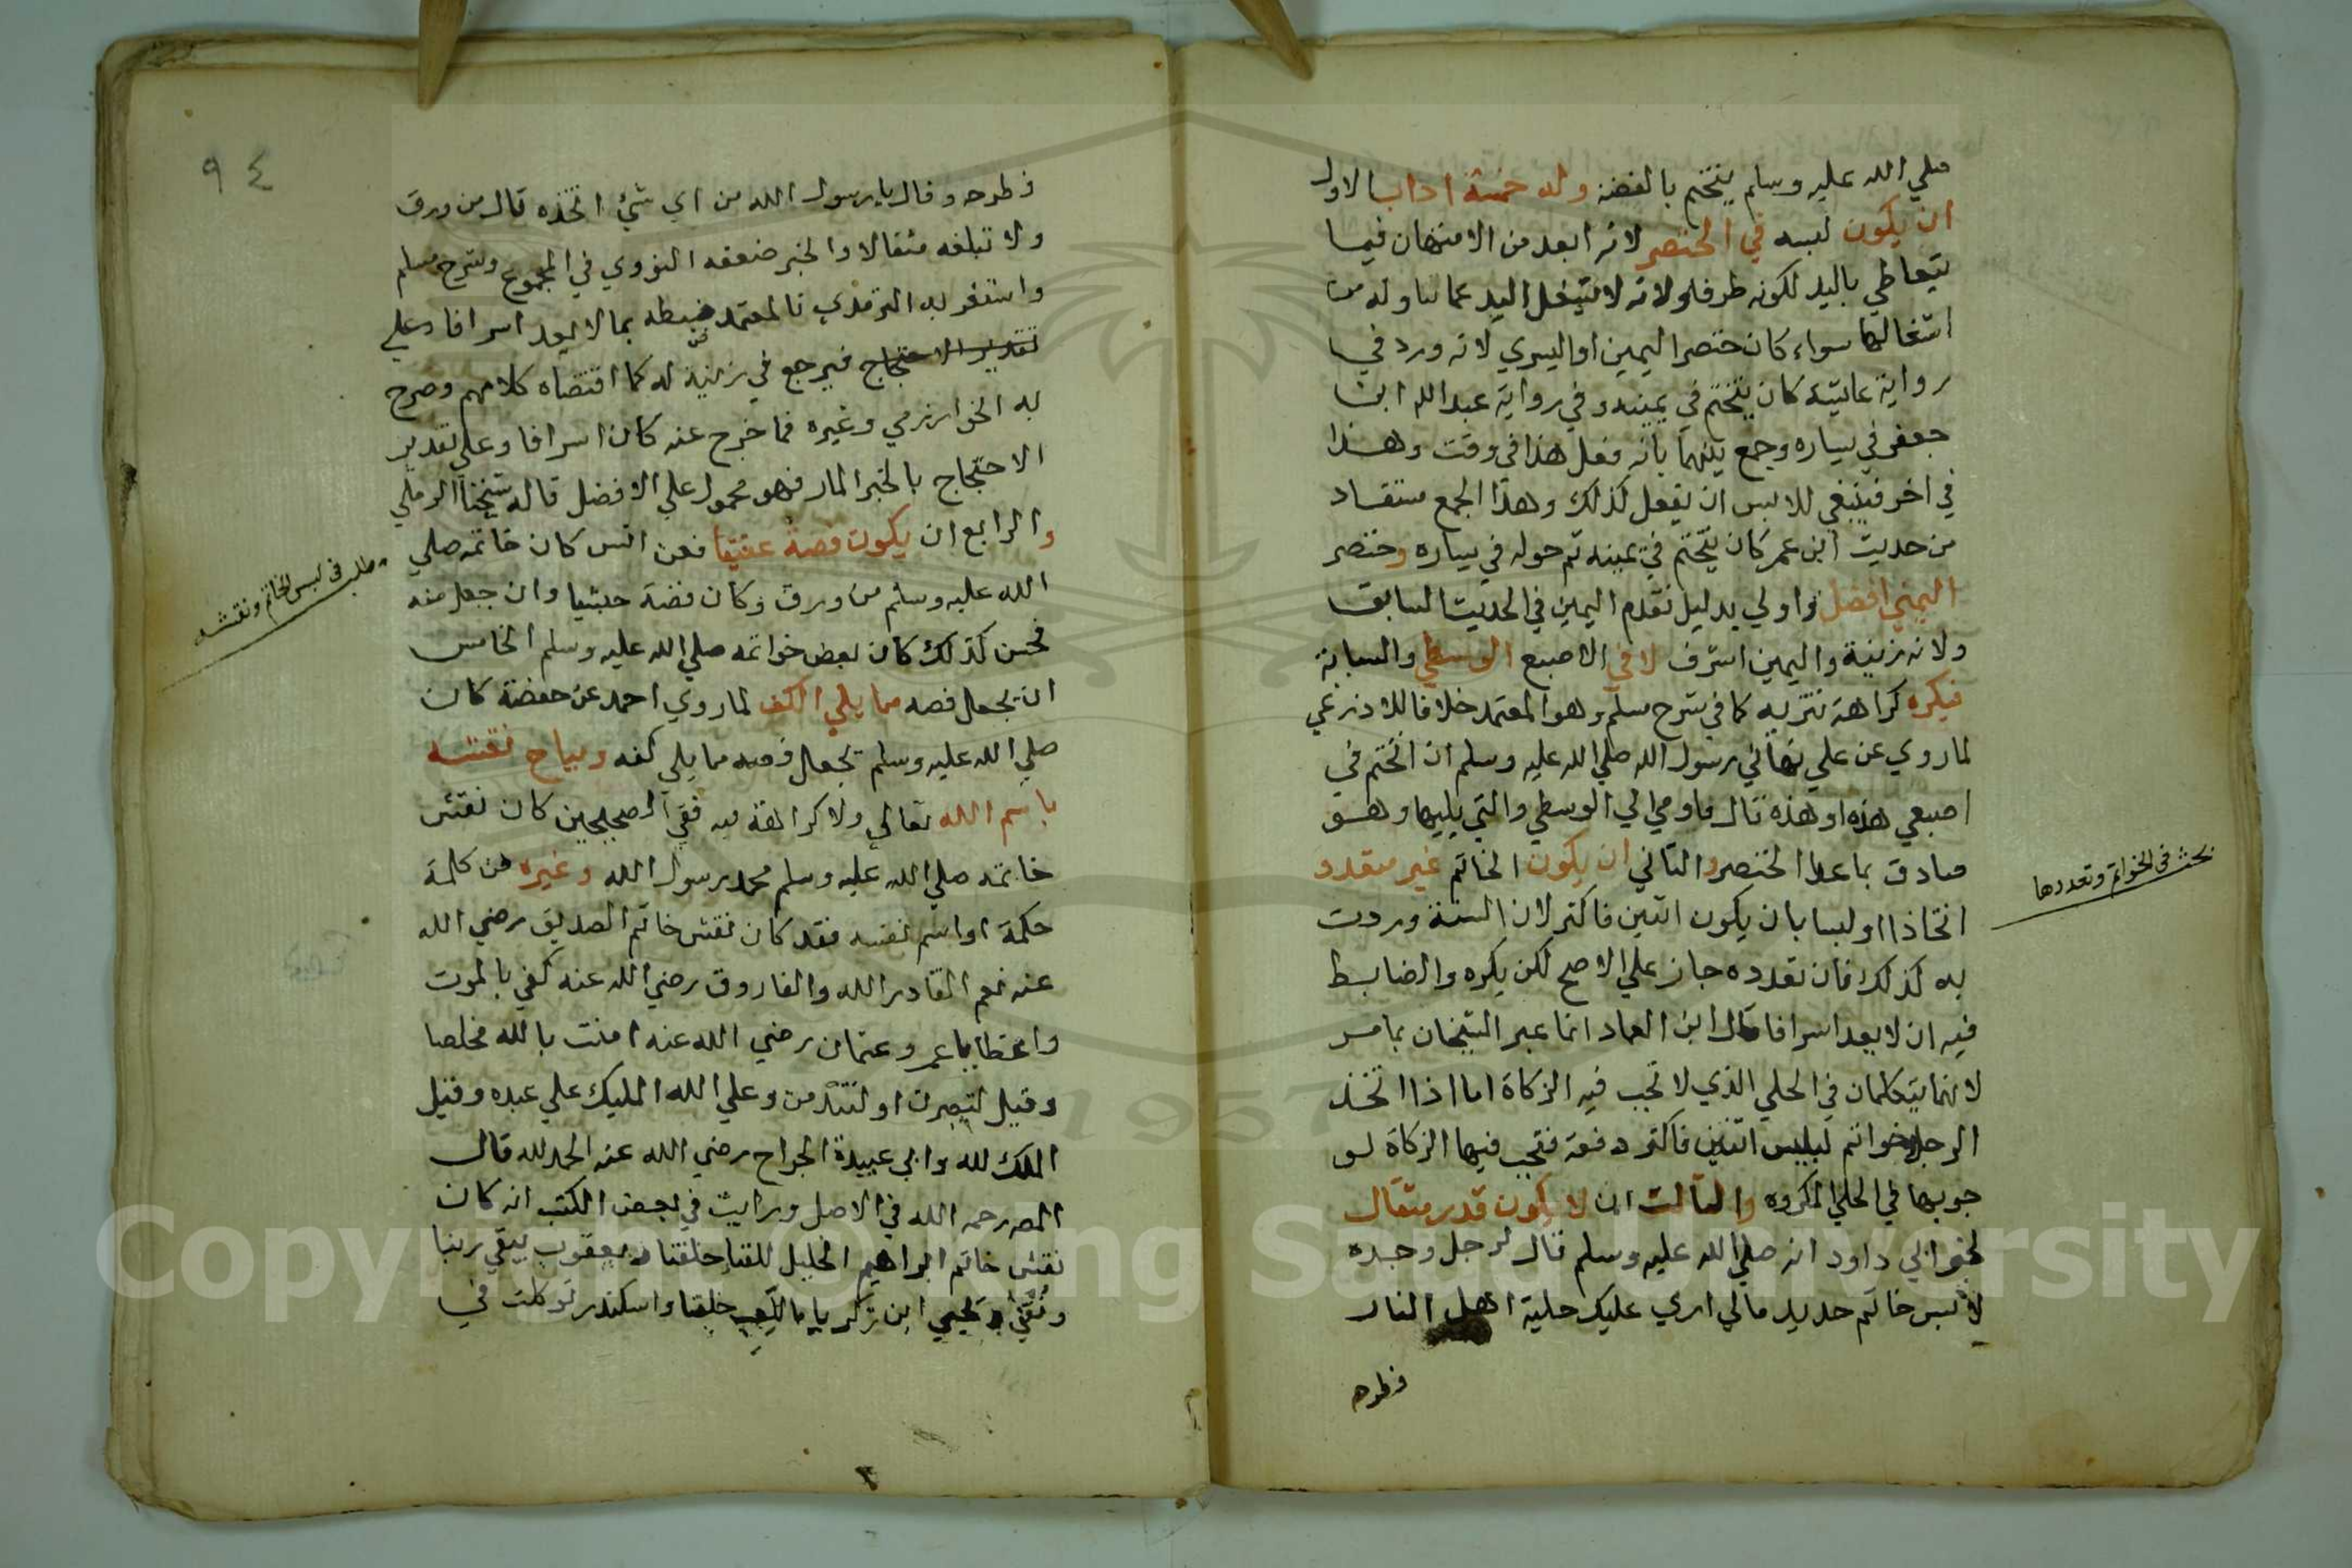 صلي الله عليه وسلم يتختم بالفضة وله خمسة اداب الاول
ان يكون لبسه في الخنصر لانه ابعد من الامتهان فيما
يتعاطي باليد لكونه طرفا ولانه لا يشغل اليد عما تناوله من
اشغالها سواء كان خنصر اليمين او اليسري لانه ورد في
رواية عائشة كان يتختم في يمينه وفي رواية عبد الله ابن
جعفر في يساره وجمع بينهما بانه فعل هذا في وقت وهذا
في اخر فينبغي للابس ان يفعل كذلك وهذا الجمع مستفاد
من حديث ابن عمر كان يتختم في يمينه ثم حوله في يساره وخنصر
اليمني افضل واولي بدليل تقدم اليمين في الحديث السابق
ولانه زينة واليمين اشرف لا في الاصبع الوسطي والسبابة
فيكره كراهة تنزيه كما في شرح مسلم وهو المعتمد خلافا للاذرعي
لما روي عن علي نهاني رسول الله صلي الله عليه وسلم ان اتختم في
اصبعي هذه او هذه قال فاومي الي الوسطي والتي يليها وهو
صادق بما عدا الخنصر والثاني ان يكون الخاتم غير متعدد
اتخاذا اولبسا بان يكون اثنين فاكثر لان السنة وردت
به كذلك فان تعدده جاز علي الاصح لكن يكره والضابط
فيه ان لا يعد اسرافا قال ابن العماد انما عبر الشيخان بما مر
لانهما يتكلمان في الحلي الذي لا تجب فيه الزكاة اما اذا اتخذ
الرجل خواتم ليلبس اثنين فاكثر دفعة فتجب فيها الزكاة لو
جوبها في الحلي المكروه والثالث ان لا يكون قدر مثقال
لخبر ابي داود انه صلي الله عليه وسلم قال لرجل وجده
لابس خاتم حديد مالي اري عليك حلية اهل النار
فطرحه
بحث في الخواتم وتعددها
٩٤
فطرحه وقال يا رسول الله من اي شيئ اتخذه قال من ورق
ولا تبلغه مثقالا والخبر ضعفه النووي في المجموع وشرح مسلم
واستغربه الترمذي فالمعتمد ضبطه بما لا يعد اسرافا وعلي
تقدير الاحتجاج فيرجع في زنته له كما اقتضاه كلامهم وصرح
به الخوارزمي وغيره فما خرج عنه كان اسرافا وعلي تقدير
الاحتجاج بالخبر المار فهو محمول علي الافضل قاله شيخنا الرملي
والرابع ان يكون فصه عقيقا فعن انس كان خاتمه صلي
الله عليه وسلم من ورق وكان فصه حبشيا وان جعل منه
فحسن كذلك كان بعض خواتمه صلي الله عليه وسلم الخامس
ان يجعل فصه مما يلي الكف لما روي احمد عن حفصة كان
صلي الله عليه وسلم يجعل فصه مما يلي كفه ويباح نقشه
باسم الله تعالي ولا كراهة فيه ففي الصحيحين كان نقش
خاتمه صلي الله عليه وسلم محمد رسول الله وغيره من كلمة
حكمة او اسم نفسه فقد كان نقش خاتم الصديق رضي الله
عنه نعم القادر الله والفاروق رضي الله عنه كفي بالموت
واعظا يا عمر وعثمان رضي الله عنه امنت بالله مخلصا
وقيل لتصبرن او لتندمن وعلي الله المليك علي عبده وقيل
الملك لله وابي عبيدة الجراح رضي الله عنه الحمد لله قال
المص رحمه الله في الاصل ورايت في بعض الكتب انه كان
نقش خاتم ابراهيم الخليل للقنا خلقنا ويعقوب ربنا
ونقش يحيي ابن زكريا خلقنا واسكندر توكلت في
مطلب في لبس الخاتم ونقشه
Copyright © King Saud University
1957